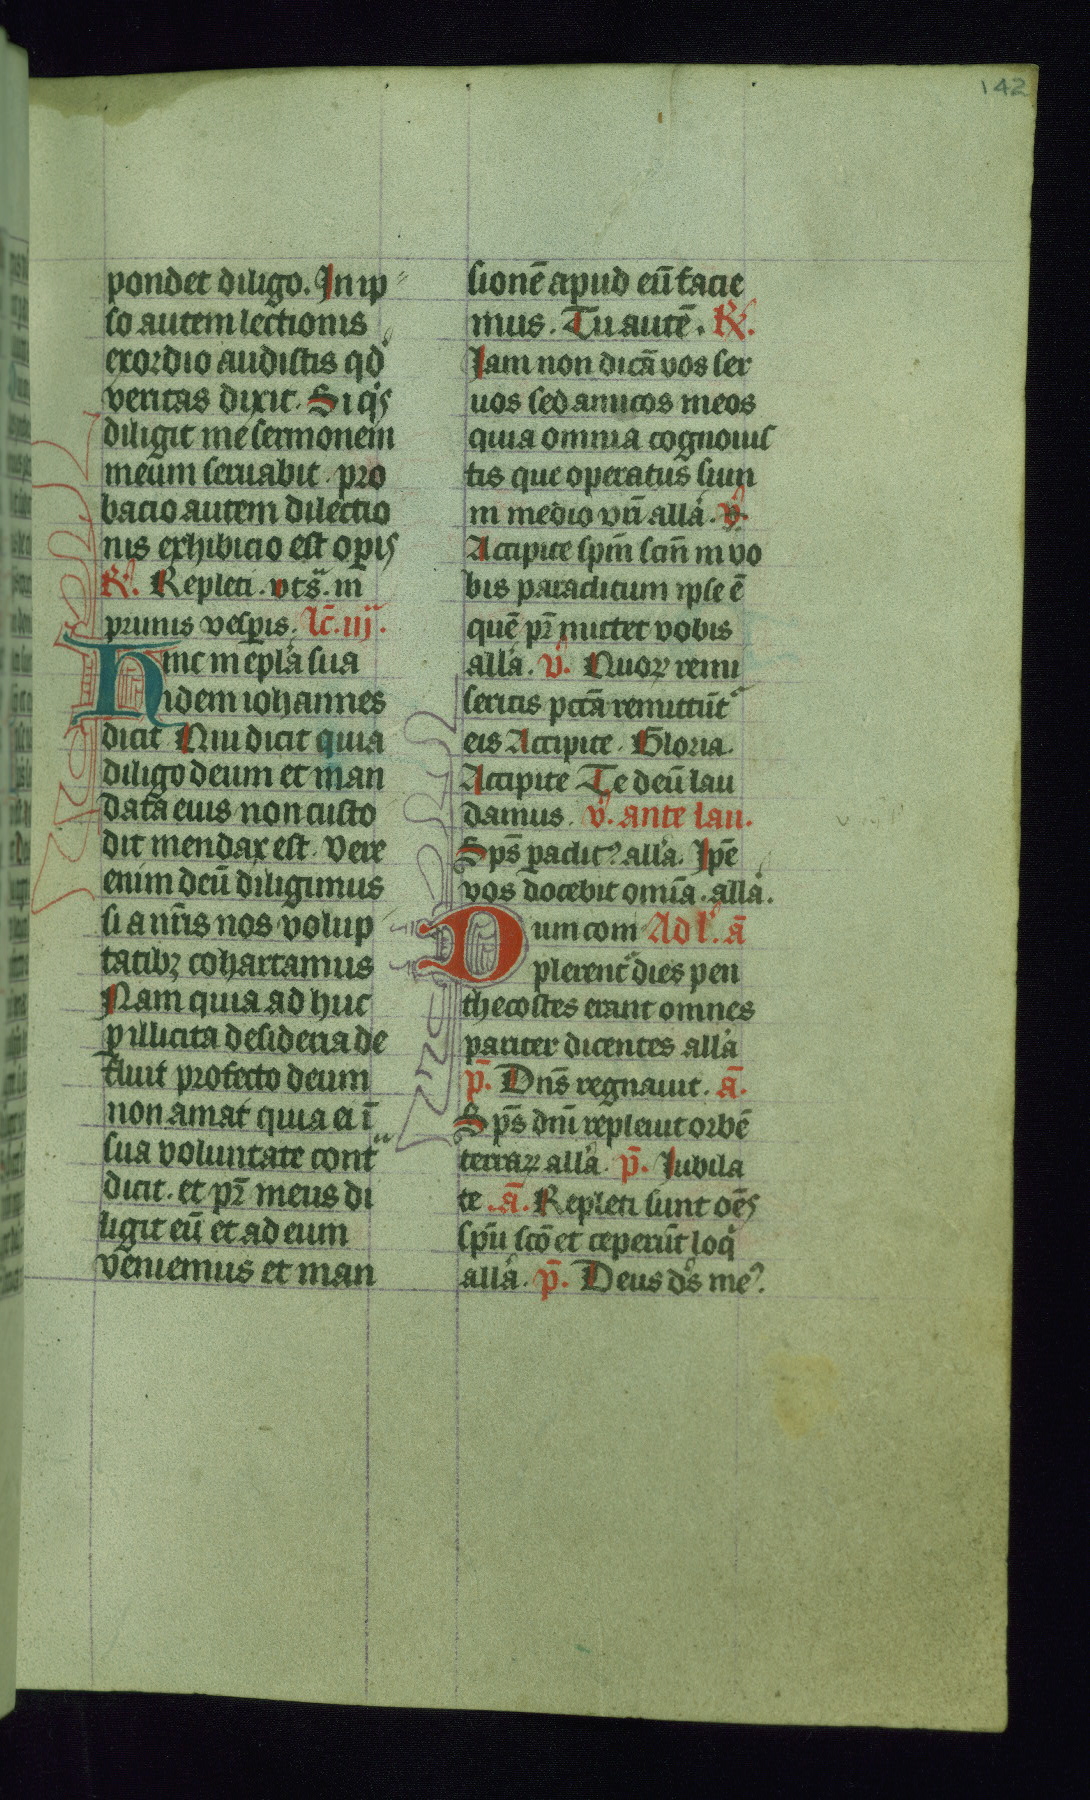 142
pondet diligo. In ip
so autem lectionis
exordio audistis qd
veritas dixit. Si q̇s
diligit me sermonem
meum seruabit. pro
bacio autem dilectio
nis exhibicio est op̲is
R̸. Repleti. vts̄. in
primis vesp̲is. lc̄. iij.
Hinc in epl̄a sua
idem iohannes
dicit Qui dicit quia
diligo deum et man
data eius non custo
dit mendax est. Vere
enim deū diligimus
si a nr̄is nos volup
tatibꝫ cohartamus
Nam quia ad huc
ꝑ illicita desideria de
fluit profecto deum
non amat quia ei ī
sua voluntate cont᷑
dicit. et pr̄ meus di
ligit eū et ad eum
veniemus et man
sionē apud eū facie
mus. Tu autē. R̸.
Jam non dicā vos ser
uos sed amicos meos
quia omnia cognouis
tis que operatus sum
in medio vr̄i allā. v̓.
Accipite sp̄m sc̄m in vo
bis paraclitum ip̄se ē
quē pr̄ mittet vobis
allā. v̓. Quoꝝ remi
seritis pccā remittūt᷑
eis Accipite. Gloria.
Accipite Te deū lau
damus. v̓. ante lau.
Sp̄s ꝑaclitꝰ allā. Ip̄e
vos docebit om̄ia. allā.
Dum com Ad l'. ā
plerent᷑ dies pen
thecostes erant omnes
pariter dicentes allā
p̄. Dn̄s regnauit. ā.
Sp̄s dn̄i repleuit orbē
terraꝝ allā. p̄. Jubila
te. ā. Repleti sunt oēs
sp̄u sc̄o et ceperūt loq̇
allā. p̄. Deus ds̄ meꝰ.